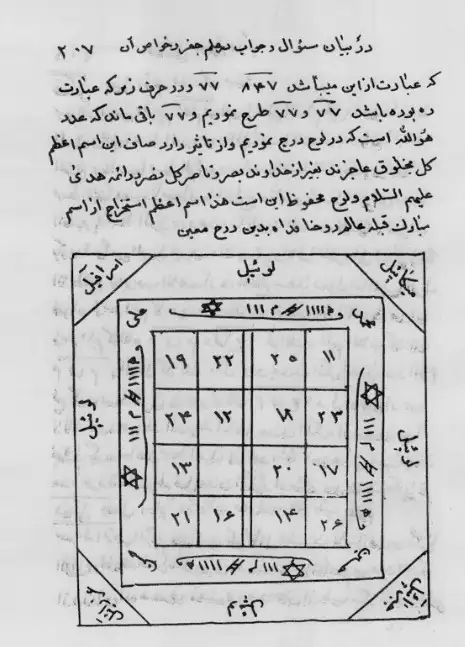 در بیان سئوال و جواب در علم جفر و خواص آن ۲۰۷
که عبارت از این میباشد ۸۴۷ ۷۷ و دو حرف زبر که عبارت
ده بوده باشد ۷۷ و ۷۷ طرح نمودیم و ۷۷ باقی ماند که عدد
هوالله است که در لوح درج نمودیم و از تاثیر دارد صاف این اسم اعظم
کل مخلوق عاجزند بغیر از خداوند بصر و ناصر کل بصر و ائمه هدی
علیهم السلام و لوح محفوظ این است هذا اسم اعظم استخراج از اسم
مبارک قبله عالم روحنا فداه بدین درج معین
اسرافیل لوئیل میکائیل
علی محمد
۱۹ ۲۲ ۲۵ ۱۱
۲۴ ۱۲ ۱۸ ۲۳
۱۳ ۲۰ ۱۷
۲۱ ۱۶ ۱۴ ۲۶
لوئیل
لوئیل